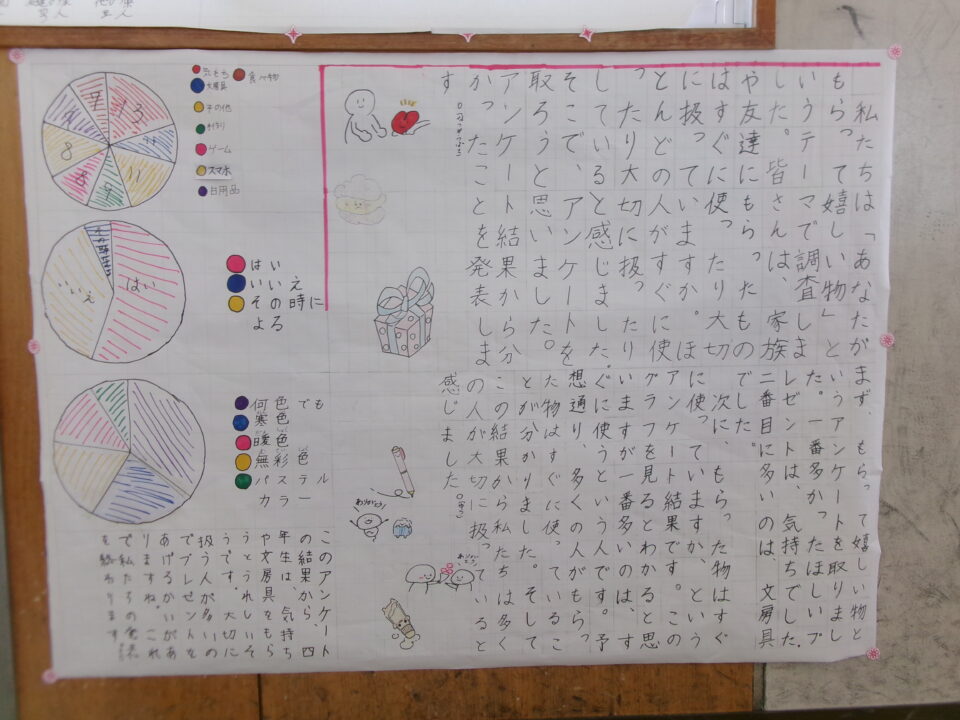 私たちは「あなたが
もらって嬉しい物」と
いうテーマで調査しま
した。皆さんは家族
や友達にもらったもの
はすぐに使ったり大切
に扱っていますか。ほ
とんどの人がすぐに使
ったり大切に扱ったり
していると感じました。
そこで、アンケートを
取ろうと思いました。
アンケート結果から分
かったことを発表しま
す
まず、もらって嬉しい物と
いうアンケートを取りまし
た。一番多かったほしいプ
レゼントは、気持ちでした。
二番目に多いのは、文房具
でした。
次に、もらった物はすぐ
に使っていますか、という
アンケート結果です。この
グラフを見るとわかると思
いますが一番多いのは、す
ぐに使うという人です。予
想通り、多くの人がもらっ
た物はすぐに使っているこ
とが分かりました。そして
この結果から私たちは多く
の人が大切に扱っていると
感じました
このアンケート
の結果から、四
年生は、気持ち
や文房具をもら
うとうれしいそ
うです。大切に
扱う人が多いの
でプレゼントを
あげるかいがあ
りますね。これ
で私たちの発表
を終わります
気もち
食べ物
文房具
その他
手作り
ゲーム
スマホ
日用品
13
11
9
8
8
はい
いいえ
その時に
よる
はい
いいえ
何色でも
寒色
暖色
無彩色
パステル
カラー
ありがとう